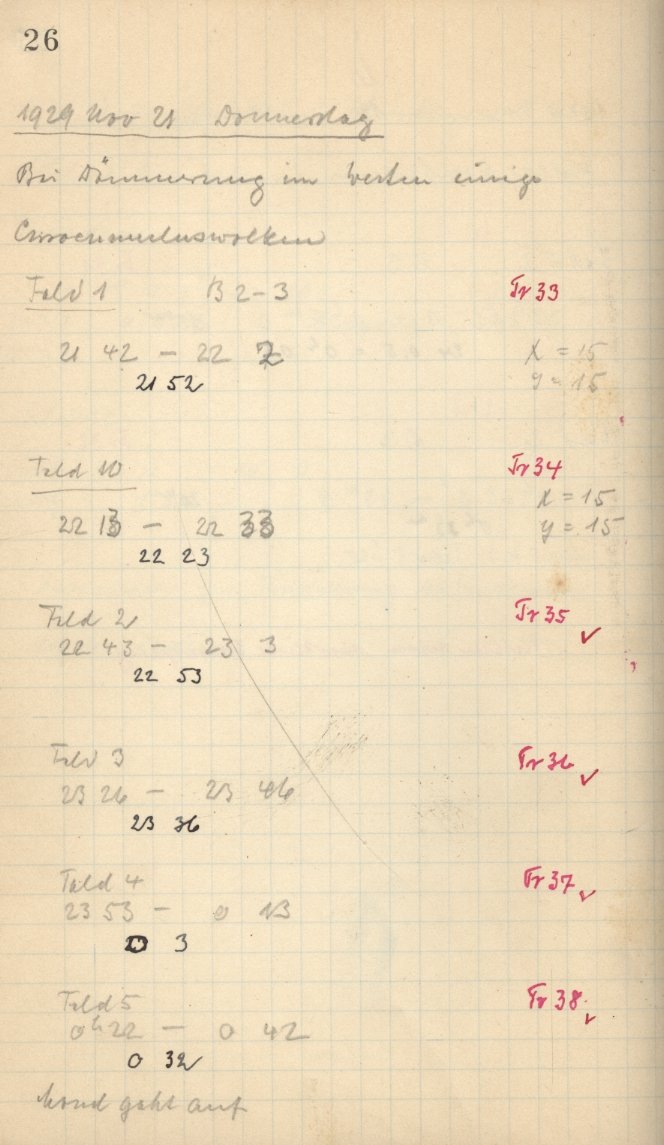 26
1929 Nov 21 Donnerstag
Bei Dämmerung im Westen einige
Cirrocumuluswolken
Feld 1 B 2-3 Tr 33
21 42 — 22 2 x = 15
21 52 y = 15
Feld 10 Tr 34
x = 15
22 13 — 22 33 y = 15
22 23
Feld 2 Tr 35 ✓
22 43 — 23 3
22 53
Feld 3 Tr 36 ✓
23 26 — 23 46
23 36
Feld 4 Tr 37 ✓
23 53 — 0 13
0 3
Feld 5 Tr 38 ✓
0h 22 — 0 42
0 32
Mond geht auf